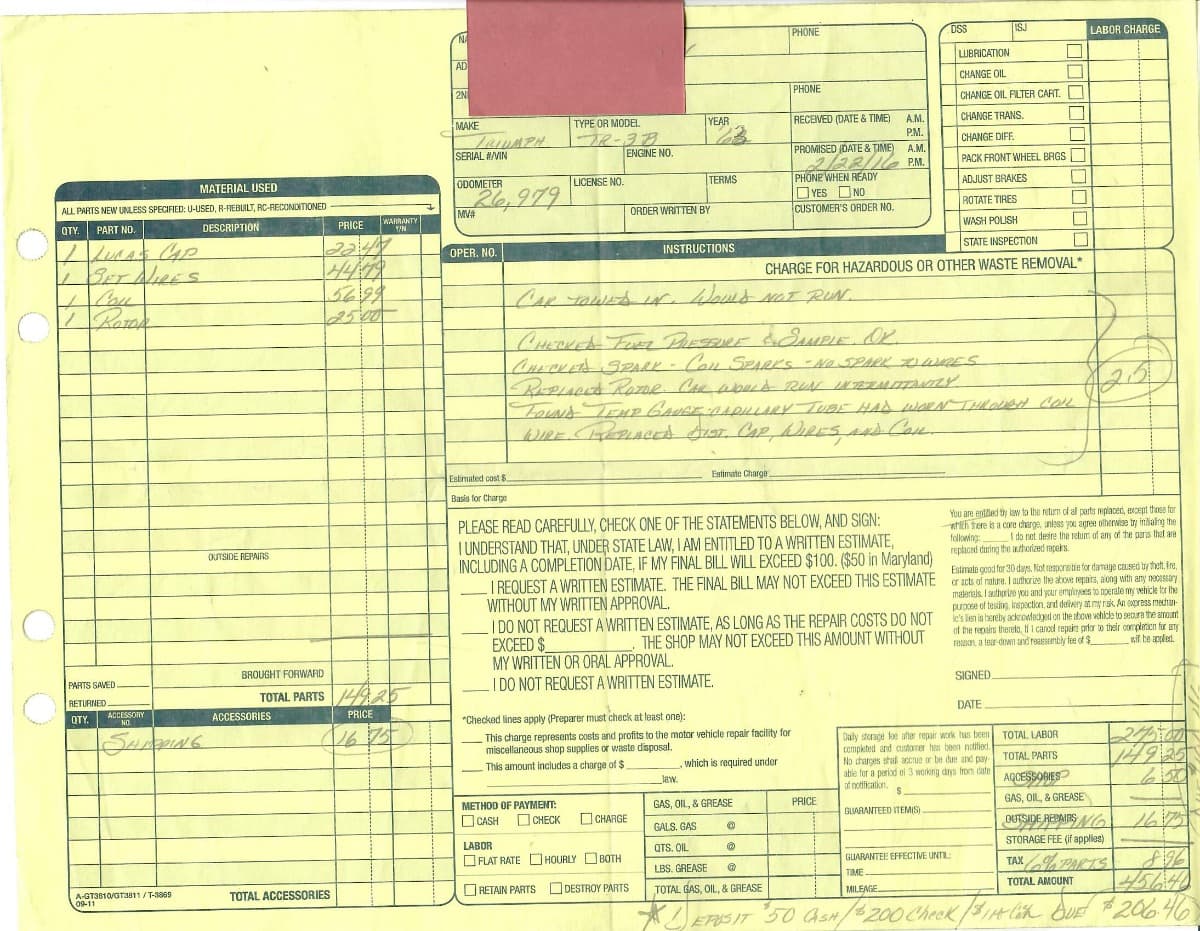 PHONE
DSS ISJ LABOR CHARGE
NA
AD
2N
PHONE
MAKE TRIUMPH
TYPE OR MODEL TR-3B
YEAR 63
RECEIVED (DATE & TIME) A.M. P.M.
SERIAL #/VIN
ENGINE NO.
PROMISED (DATE & TIME) A.M. P.M.
2/22/16
ODOMETER 26,979
LICENSE NO.
TERMS
PHONE WHEN READY
YES NO
MV#
ORDER WRITTEN BY
CUSTOMER'S ORDER NO.
LUBRICATION
CHANGE OIL
CHANGE OIL FILTER CART.
CHANGE TRANS.
CHANGE DIFF.
PACK FRONT WHEEL BRGS
ADJUST BRAKES
ROTATE TIRES
WASH POLISH
STATE INSPECTION
MATERIAL USED
ALL PARTS NEW UNLESS SPECIFIED: U-USED, R-REBUILT, RC-RECONDITIONED
QTY. PART NO. DESCRIPTION PRICE WARRANTY Y/N
1 LUCAS CAP 22.47
1 SET WIRES 44.79
1 COIL 56.99
1 ROTOR 25.00
OUTSIDE REPAIRS
PARTS SAVED
RETURNED
BROUGHT FORWARD
TOTAL PARTS 149.25
QTY. ACCESSORY NO. ACCESSORIES PRICE
SHIPPING 16 75
A-GT3810/GT3811 / T-3869
09-11
TOTAL ACCESSORIES
OPER. NO. INSTRUCTIONS
CHARGE FOR HAZARDOUS OR OTHER WASTE REMOVAL*
CAR TOWED IN. WOULD NOT RUN.
CHECKED FUEL PRESSURE & SAMPLE. OK.
CHECKED SPARK - COIL SPARKS - NO SPARK TO WIRES
REPLACED ROTOR. CAR WOULD RUN INTERMITTANTLY.
FOUND TEMP GAUGE CAPILLARY TUBE HAD WORN THROUGH COIL
WIRE. REPLACED DIST. CAP, WIRES, AND COIL.
2.5
Estimated cost $ Estimate Charge
Basis for Charge
PLEASE READ CAREFULLY, CHECK ONE OF THE STATEMENTS BELOW, AND SIGN:
I UNDERSTAND THAT, UNDER STATE LAW, I AM ENTITLED TO A WRITTEN ESTIMATE,
INCLUDING A COMPLETION DATE, IF MY FINAL BILL WILL EXCEED $100. ($50 in Maryland)
I REQUEST A WRITTEN ESTIMATE. THE FINAL BILL MAY NOT EXCEED THIS ESTIMATE
WITHOUT MY WRITTEN APPROVAL.
I DO NOT REQUEST A WRITTEN ESTIMATE, AS LONG AS THE REPAIR COSTS DO NOT
EXCEED $ . THE SHOP MAY NOT EXCEED THIS AMOUNT WITHOUT
MY WRITTEN OR ORAL APPROVAL.
I DO NOT REQUEST A WRITTEN ESTIMATE.
*Checked lines apply (Preparer must check at least one):
This charge represents costs and profits to the motor vehicle repair facility for
miscellaneous shop supplies or waste disposal.
This amount includes a charge of $ , which is required under
law.
METHOD OF PAYMENT:
CASH CHECK CHARGE
LABOR
FLAT RATE HOURLY BOTH
RETAIN PARTS DESTROY PARTS
GAS, OIL, & GREASE PRICE
GALS. GAS @
QTS. OIL @
LBS. GREASE @
TOTAL GAS, OIL, & GREASE
You are entitled by law to the return of all parts replaced, except those for
which there is a core charge, unless you agree otherwise by initialing the
following: I do not desire the return of any of the parts that are
replaced during the authorized repairs.
Estimate good for 30 days. Not responsible for damage caused by theft, fire,
or acts of nature. I authorize the above repairs, along with any necessary
materials. I authorize you and your employees to operate my vehicle for the
purpose of testing, inspection, and delivery at my risk. An express mechan-
ic's lien is hereby acknowledged on the above vehicle to secure the amount
of the repairs thereto. If I cancel repairs prior to their completion for any
reason, a tear-down and reassembly fee of $ will be applied.
SIGNED
DATE
Daily storage fee after repair work has been
completed and customer has been notified.
No charges shall accrue or be due and pay-
able for a period of 3 working days from date
of notification. $
GUARANTEED ITEM(S)
GUARANTEE EFFECTIVE UNTIL:
TIME
MILEAGE
TOTAL LABOR 275.00
TOTAL PARTS 149.25
ACCESSORIES SHOP 6 50
GAS, OIL, & GREASE
OUTSIDE REPAIRS SHIPPING 16 75
STORAGE FEE (if applies)
TAX 6% PARTS 8.96
TOTAL AMOUNT 456.46
* DEPOSIT $50 CASH / $200 CHECK / DUE $206.46